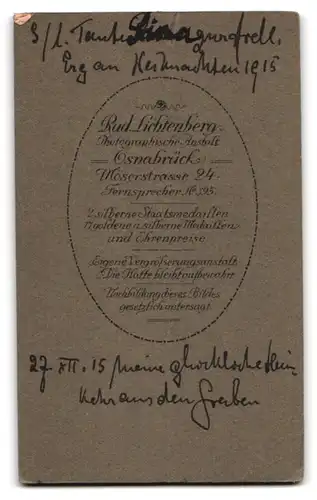 S/l. Tante Lina zur frdl.
Erg an Weihnachten 1915
Rud. Lichtenberg
Photographische Anstalt
Osnabrück
Möserstrasse 24.
Fernsprecher No. 595.
2 silberne Staatsmedaillen
17 goldene u. silberne Medaillen
und Ehrenpreise.
Eigene Vergrößerungsanstalt
Die Platte bleibt aufbewahrt
Nachbildung dieses Bildes
gesetzlich untersagt.
27. XII. 15 meine glückliche Heim
kehr aus den Gräben